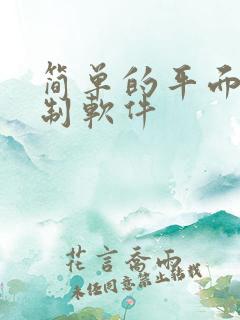 简单的平面
制软件
花言乔雨
未经同意禁止转载